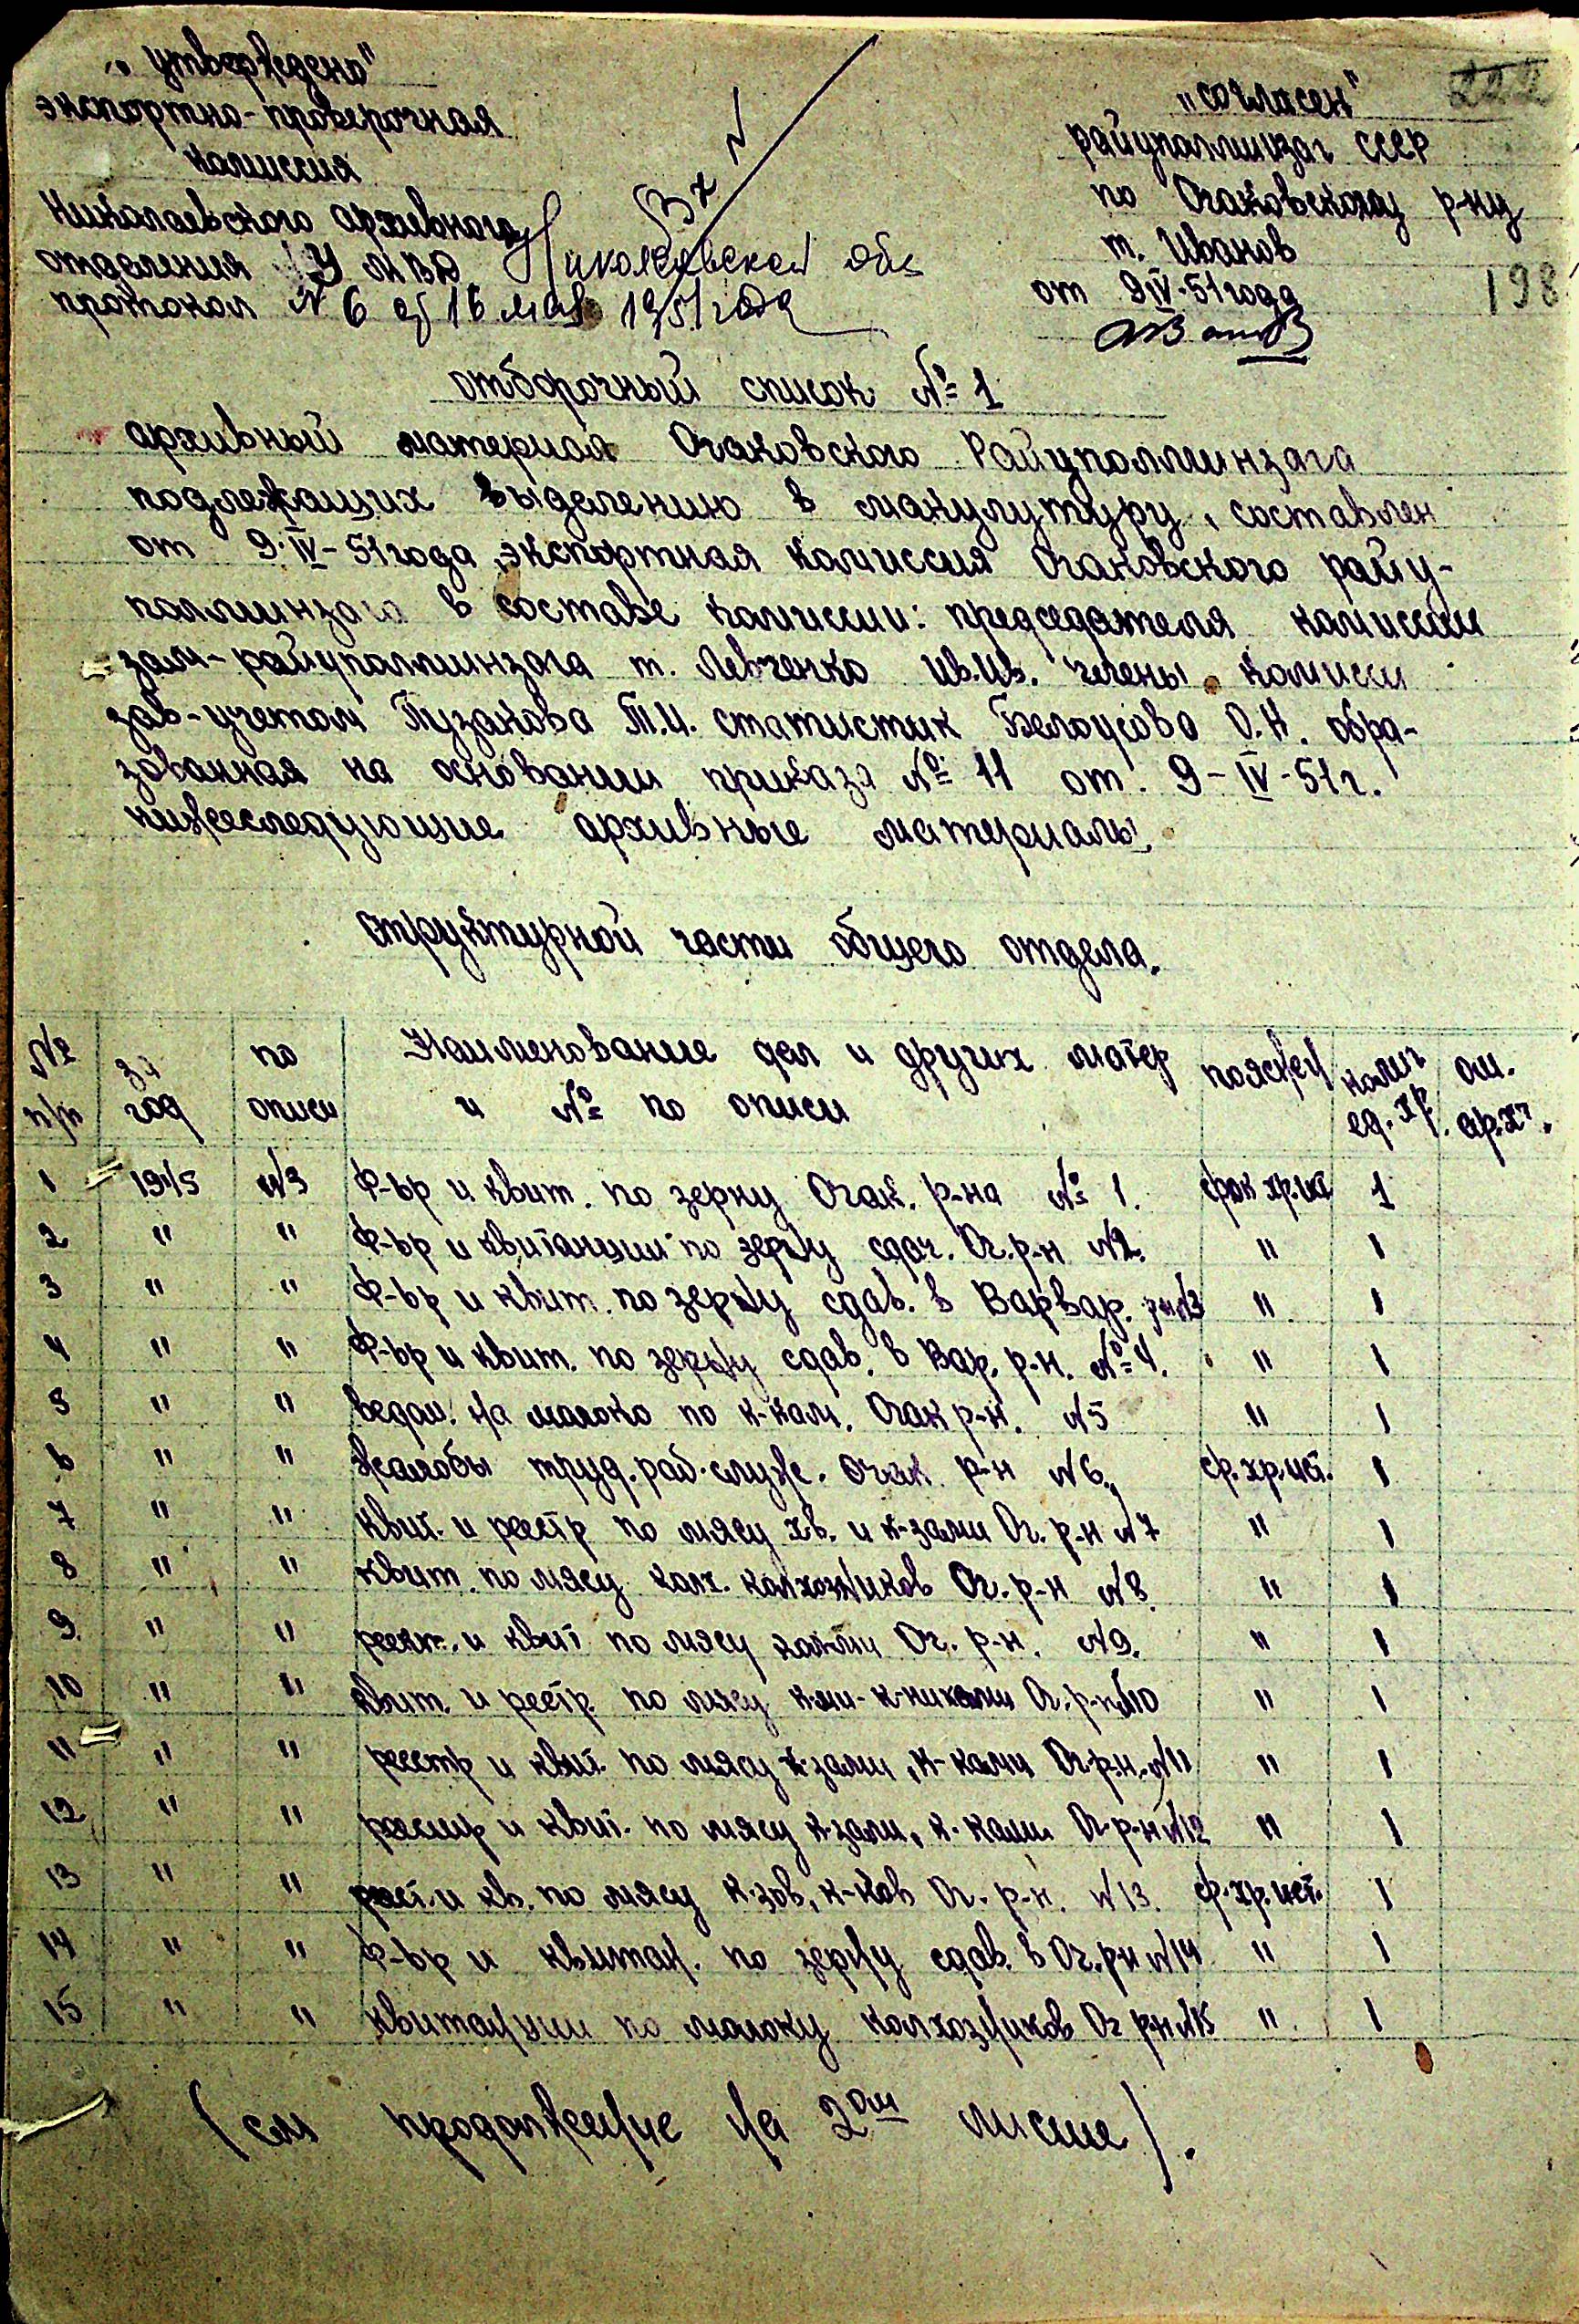 „утверждено"
экспортно-проверочная
комиссия
Николаевского архивного
отделения УМВД Николаевской обл
протокол № 6 от 16 мая 1951 года
Вх №
„согласен"
райуполминзаг СССР
по Очаковскому р-ну
т. Иванов
от 9 IV-51 года
222
198
отборочный список № 1
архивный материал Очаковского Райуполминзага
подлежащих выделению в макулутуру, составлен
от 9.IV-51 года, экспортная комиссия Очаковского райу-
полминзага в составе комиссии: председателя комиссии
зам-райуполминзага т. Левченко Ив.Ив. члены комисси
зав-учетом Пузакова Т.И. статистик Белоусова О.Н. обра-
зованная на основании приказа № 11 от 9-IV-51г.
нижеследующие архивные материалы.
структурной части общего отдела.
№ п/п за год по описи Наименование дел и других матер и № по описи поясен колич ед. хр. от. ар.хч.
1 1945 №3 Ф-ьр и квит. по зерну Очак. р-на № 1. срок хр.ист 1
2 " " Ф-ьр и квитанции по зерну сдач. Оч. р-н №2. " 1
3 " " Ф-ьр и квит. по зерну сдав. в Варвар. р-н №3 " 1
4 " " Ф-ьр и квит. по зерну сдав. в Вар. р-н. №4. " 1
5 " " ведом. на молоко по к-кам. Очак р-н. №5 " 1
6 " " жалобы труд. раб. служ. Очак р-н №6. ср. хр.ист. 1
7 " " квит. и реестр по мясу хв. и к-зами Оч. р-н №7 " 1
8 " " квит. по мясу колх. колхозников Оч. р-н №8. " 1
9. " " реест. и квит по мясу Оч. р-н. №9. " 1
10 " " квит. и реестр. по мясу к-ми- к-никами Оч. р-н №10 " 1
11 " " реестр и квит. по мясу к-зами, к-ками Оч.р-н. №11 " 1
12 " " реестр и квит. по мясу к-зам, к-ками Оч. р-н №12 " 1
13 " " реест. и кв. по мясу к-зов, к-ков Оч. р-н. №13. ср. хр. ист. 1
14 " " Ф-ьр и квитан. по зерну сдав. в Оч. р-н №14 " 1
15 " " квитанции по молоку колхозников Оч р-н №15 " 1
(см продолжение на 2ом листе).